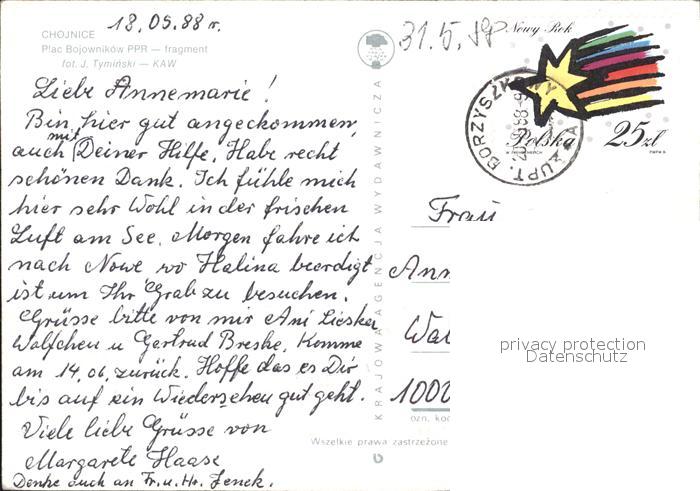 18.05.88 r.
CHOJNICE
Plac Bojowników PPR — fragment
fot. J. Tymiński — KAW
Liebe Annemarie!
Bin hier gut angeckommen,
auch mit Deiner Hilfe, Habe recht
schönen Dank. Ich fühle mich
hier sehr Wohl in der frischen
Luft am See. Morgen fahre ich
nach Nowe wo Halina beerdigt
ist um Ihr Grab zu besuchen.
Grüsse bitte von mir Ani Lieska
Wolfchen u Gertrud Breske. Komme
am 14.06. zurück. Hoffe das es Dir
bis auf ein Wiedersehen gut geht.
Viele liebe Grüsse von
Margarete Haase
Denke auch an Fr. u. Hr. Jenek.
KRAJOWA AGENCJA WYDAWNICZA
31.5.
Nowy Rok
Polska 25 zł
BORZYSZKOWY
Frau
Ann
Wal
1000
ozn. kod
Wszelkie prawa zastrzeżone
privacy protection
Datenschutz